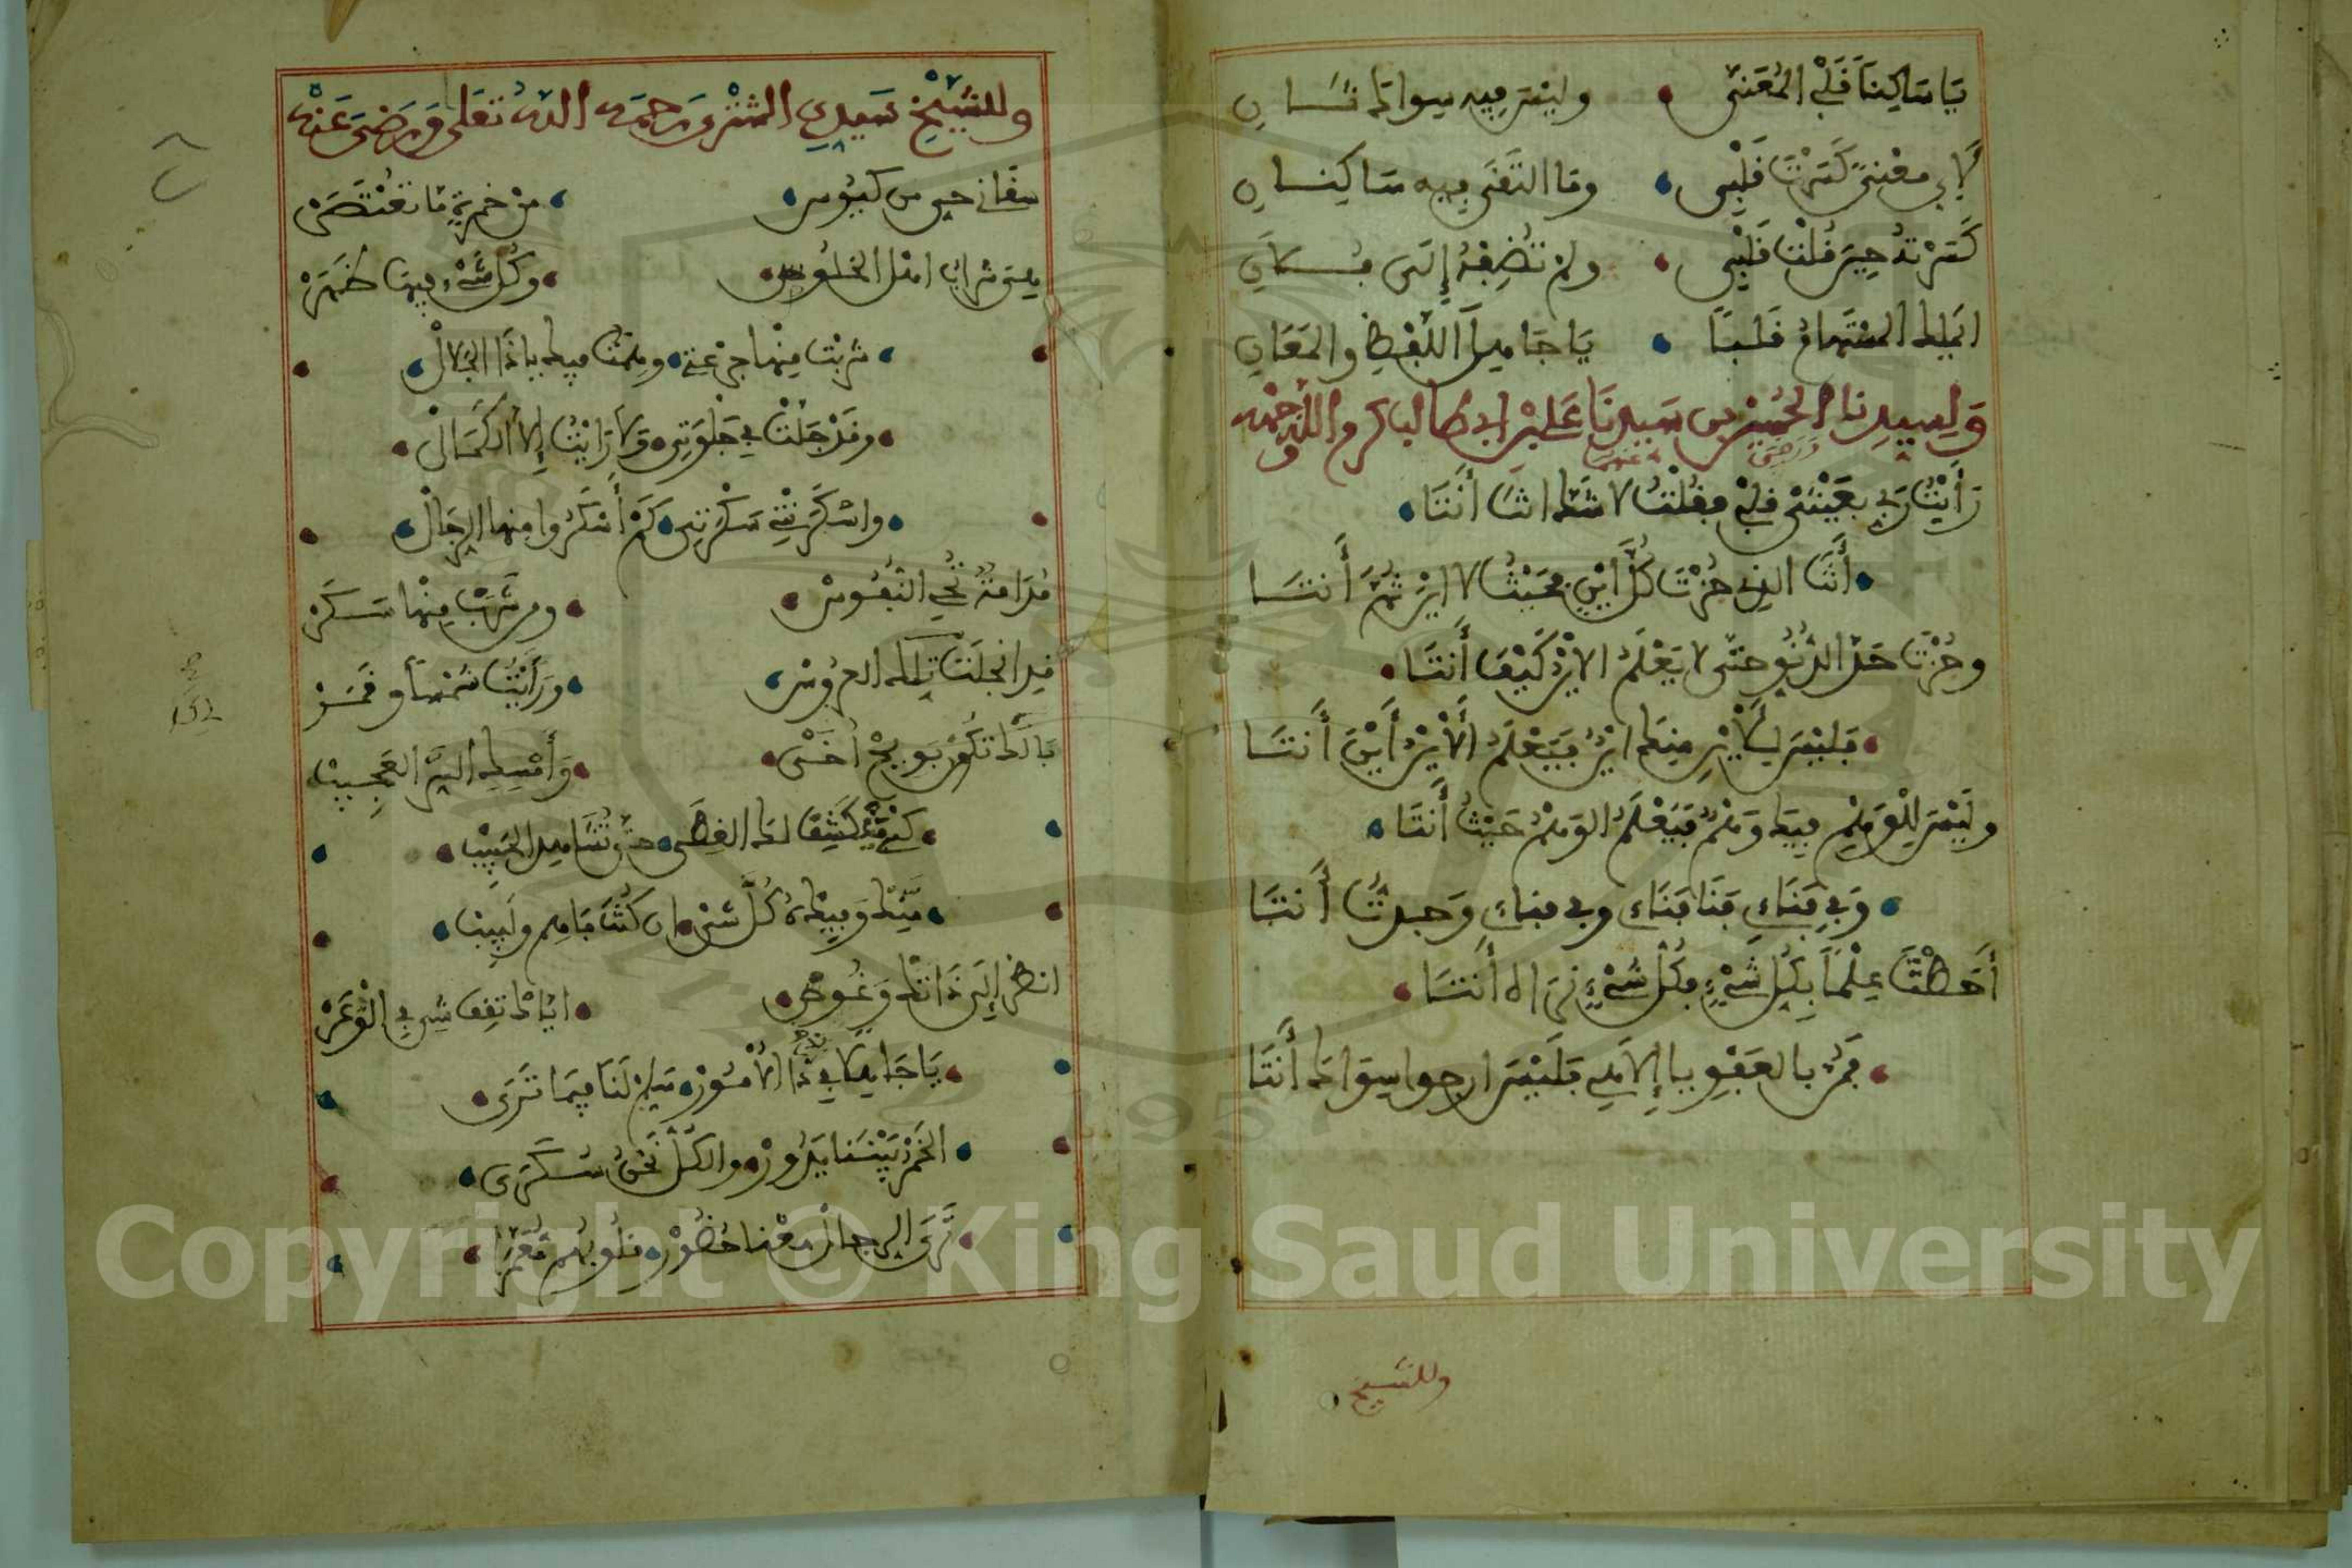 يَا سَاكِنًا قَلْبِي الْمُعَنَّى • وليس فيه سواك ثان
لأي معنى كَسَرْتَ قَلْبِي • وما التقى فيه ساكنان
كَسَرْتَهُ حين قلت قلبي • ولم تُضِفْهُ إلى
المستهام قلبا • يا حامل اللفظ والمعان
وَلِسيدنا الحسين بن سيدنا علي بن ابي طالب كرم الله وجهه
ورضي عنهما
رَأَيْتُ رَبِّي بِعَيْنِ قلبي فقُلْتُ لا شك انت أَنْتَا •
• أَنْتَ الذي حُزْتَ كُلَّ أَيْنٍ بحيثُ لا اين ثَمَّ أَنتَا
وحُزْتَ حَدَّ الدُّنُوِّ حتى لا يَعْلَمُ الاين كَيْفَ أَنتَا •
• فليس لِلأَيْنِ منك اينٌ فيَعْلَمُ الأَيْنُ أَيْنَ أَنتَا
وليس للوهم فيك وهمٌ فيَعْلَمُ الوهمُ حَيْثُ أَنتَا •
• وفي فَنَاءِ فَنَا فَنَاءِ وفي فناءِ وَجدتُ أَنتَا
أَحَطْتَ عِلْمًا بِكُلِّ شَيْءٍ فكُلُّ شَيْءٍ نراه أَنتَا •
• فَمُنَّ بالعَفْوِ يا إِلاهي فليس ارجوا سِوَاكَ أَنتَا
وللشيخ
وللشَّيْخِ سَيدِي الششْتري رَحِمَه اللهُ تعَلى وَرَضِيَ عَنْه
سقاني حبي من كئوس • من خمرةٍ ما تعْتَصَرْ
شراب اهل الخلوص • وكُل شَيْءٍ فيها ظَهَرْ
• شربْت منها جرْعة • وهِمْتُ فيك يا ذا الجلالْ •
• وقَدْ جَلَتْ في جَلْوَتي • وَلا رَايْتُ إلا الكمالْ •
• واسْكَرَتْني سَكْرتي • كَمْ أَسْكَرُوا منها الرجالْ •
مُدَامَةٌ تُحْي النّفُوسْ • ومن شَرِبْ مِنْها سكرْ
قد انجلَتْ تلك العروسْ • ورَأَيْتُ شمْساً وقمرْ
بَالَكْ تكُنْ بويح اخَي • وَأَمْسِكِ السِّرَّ العجيبْ
• كَيْ يكْشِف لك الغِطَى • حتى تُشَاهد الحبيبْ •
• مِنَّكْ وَفِيكْ كُلَّ شيْ • ان كُنْتَ فاهم ولبيبْ •
انظر إلى ذَاتكْ وَغُوصْ • اياك تقف شي في الْوَعَرْ
• يَا جَاهِلاً في ذا الأُمُورْ • سَلِّمْ لَنَا فيما تَرَى •
• الخمرْ بَيْنَنا يَدُورْ • والكُلّ نَحْنُ سكرى •
• تَرَى الرجال مَعْنا حُضُورْ • قلوبهم •